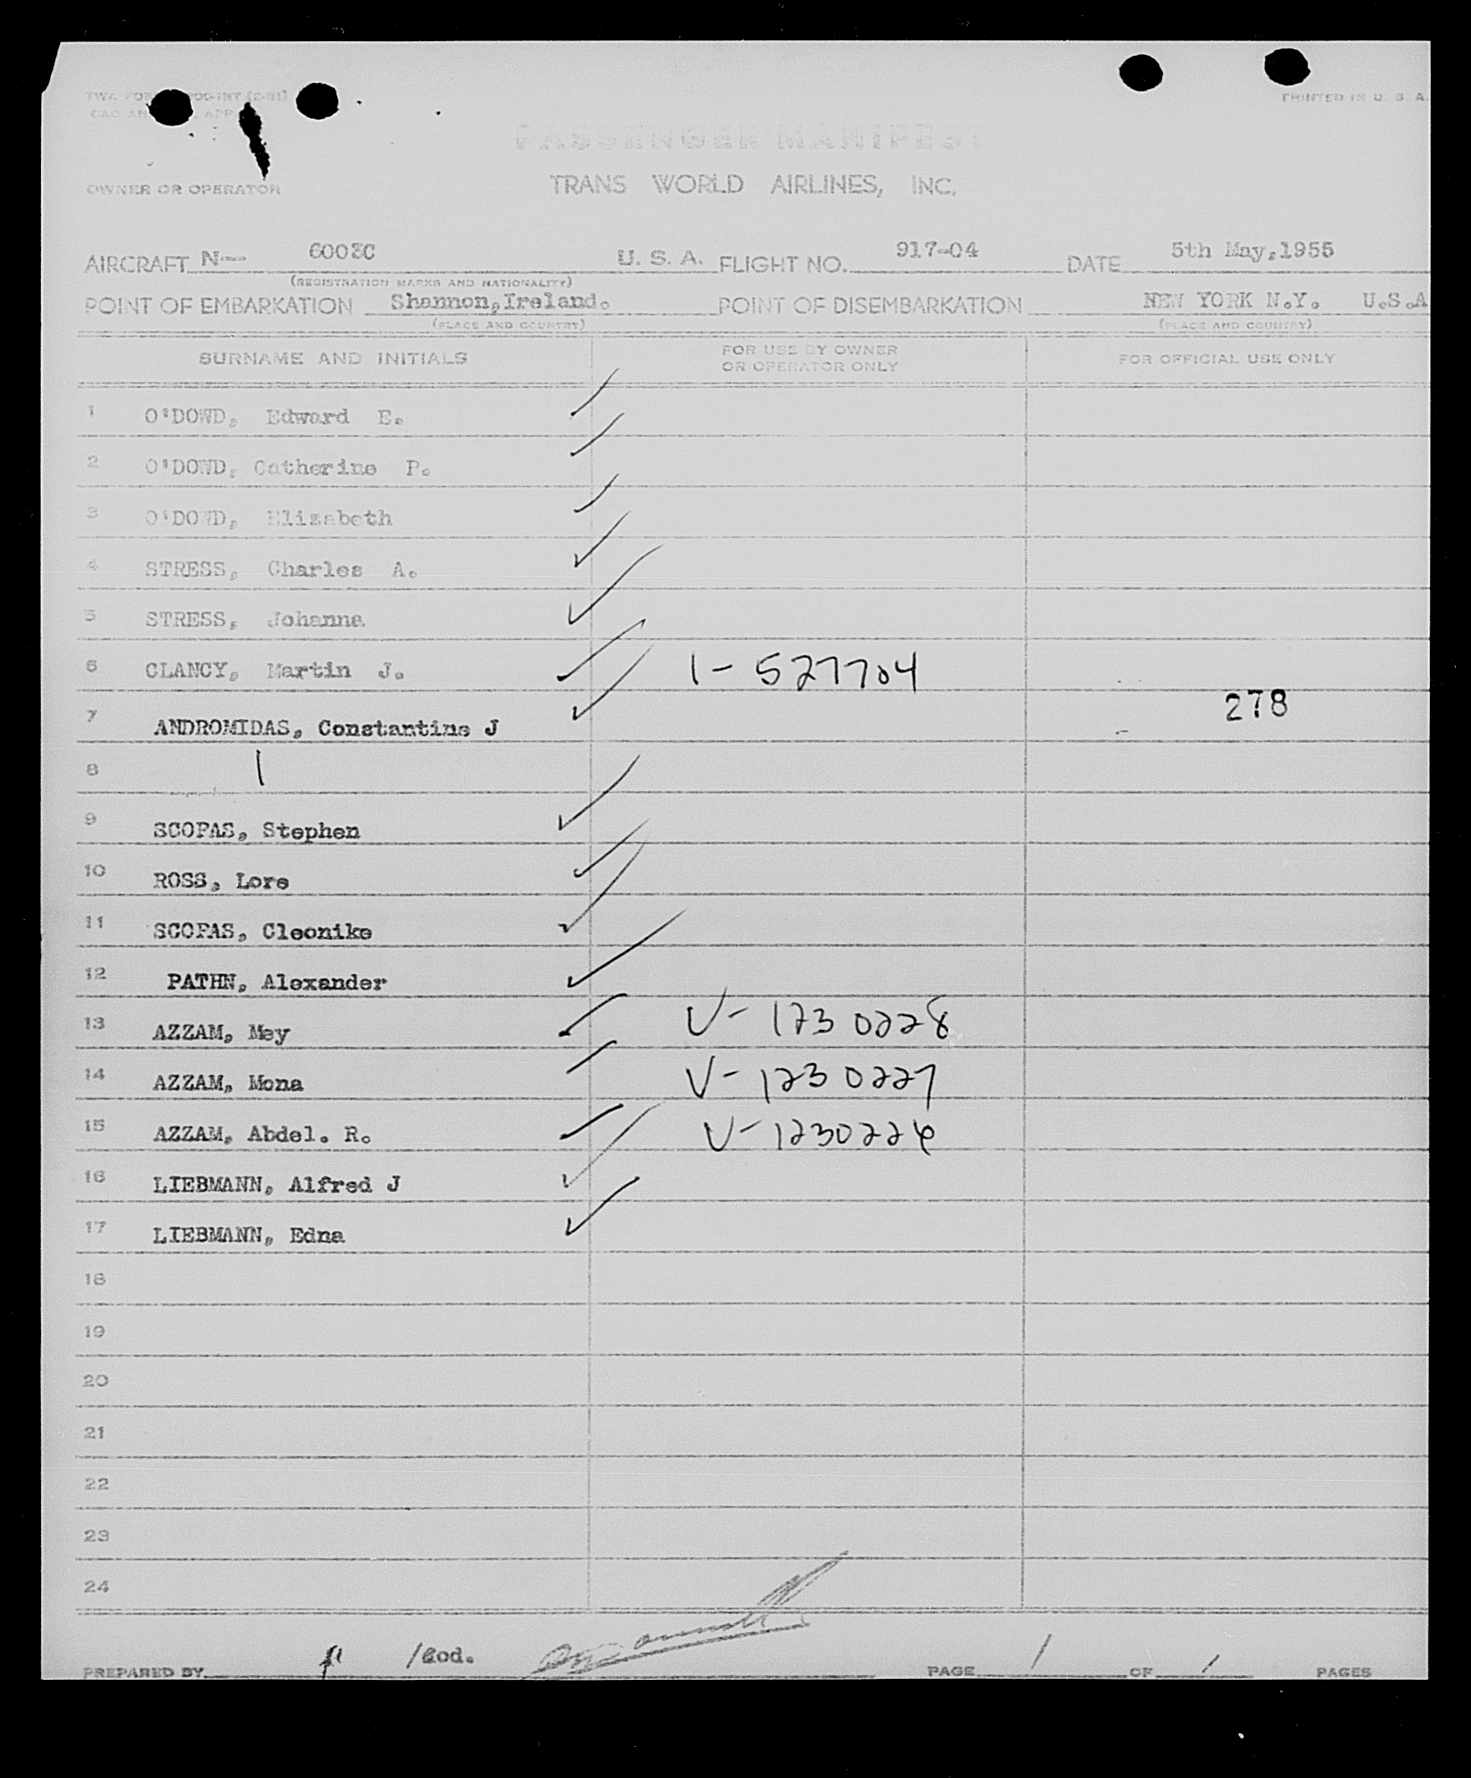 PRINTED IN U. S. A.
PASSENGER MANIFEST
OWNER OR OPERATOR TRANS WORLD AIRLINES, INC.
AIRCRAFT N-- 6003C U. S. A. FLIGHT NO. 917-04 DATE 5th May,1955
(REGISTRATION MARKS AND NATIONALITY)
POINT OF EMBARKATION Shannon,Ireland. POINT OF DISEMBARKATION NEW YORK N.Y. U.S.A
(PLACE AND COUNTRY) (PLACE AND COUNTRY)
SURNAME AND INITIALS FOR USE BY OWNER OR OPERATOR ONLY FOR OFFICIAL USE ONLY
1 O'DOWD, Edward E.
2 O'DOWD, Catherine P.
3 O'DOWD, Elizabeth
4 STRESS, Charles A.
5 STRESS, Johanna
6 CLANCY, Martin J. 1-527704
7 ANDROMIDAS, Constantine J 278
8
9 SCOPAS, Stephen
10 ROSS, Lore
11 SCOPAS, Cleonike
12 PATHN, Alexander
13 AZZAM, May V-1230228
14 AZZAM, Mona V-1230227
15 AZZAM, Abdel. R. V-1230226
16 LIEBMANN, Alfred J
17 LIEBMANN, Edna
18
19
20
21
22
23
24
PREPARED BY /eod. PAGE 1 OF 1 PAGES